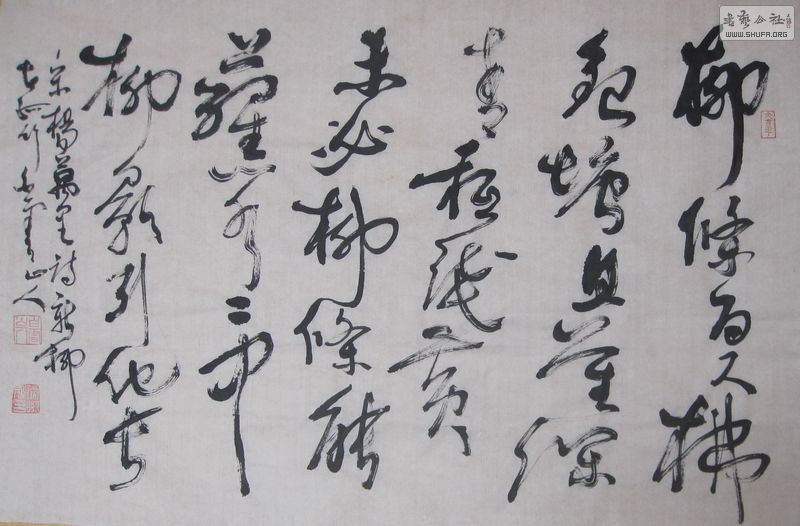 書藝公社
WWW.SHUFA.ORG
柳條百尺拂
銀塘且莫深
青秖淺黄
未必柳條能
蘸水〻中
柳影引他長
宋楊萬里詩新柳
山人